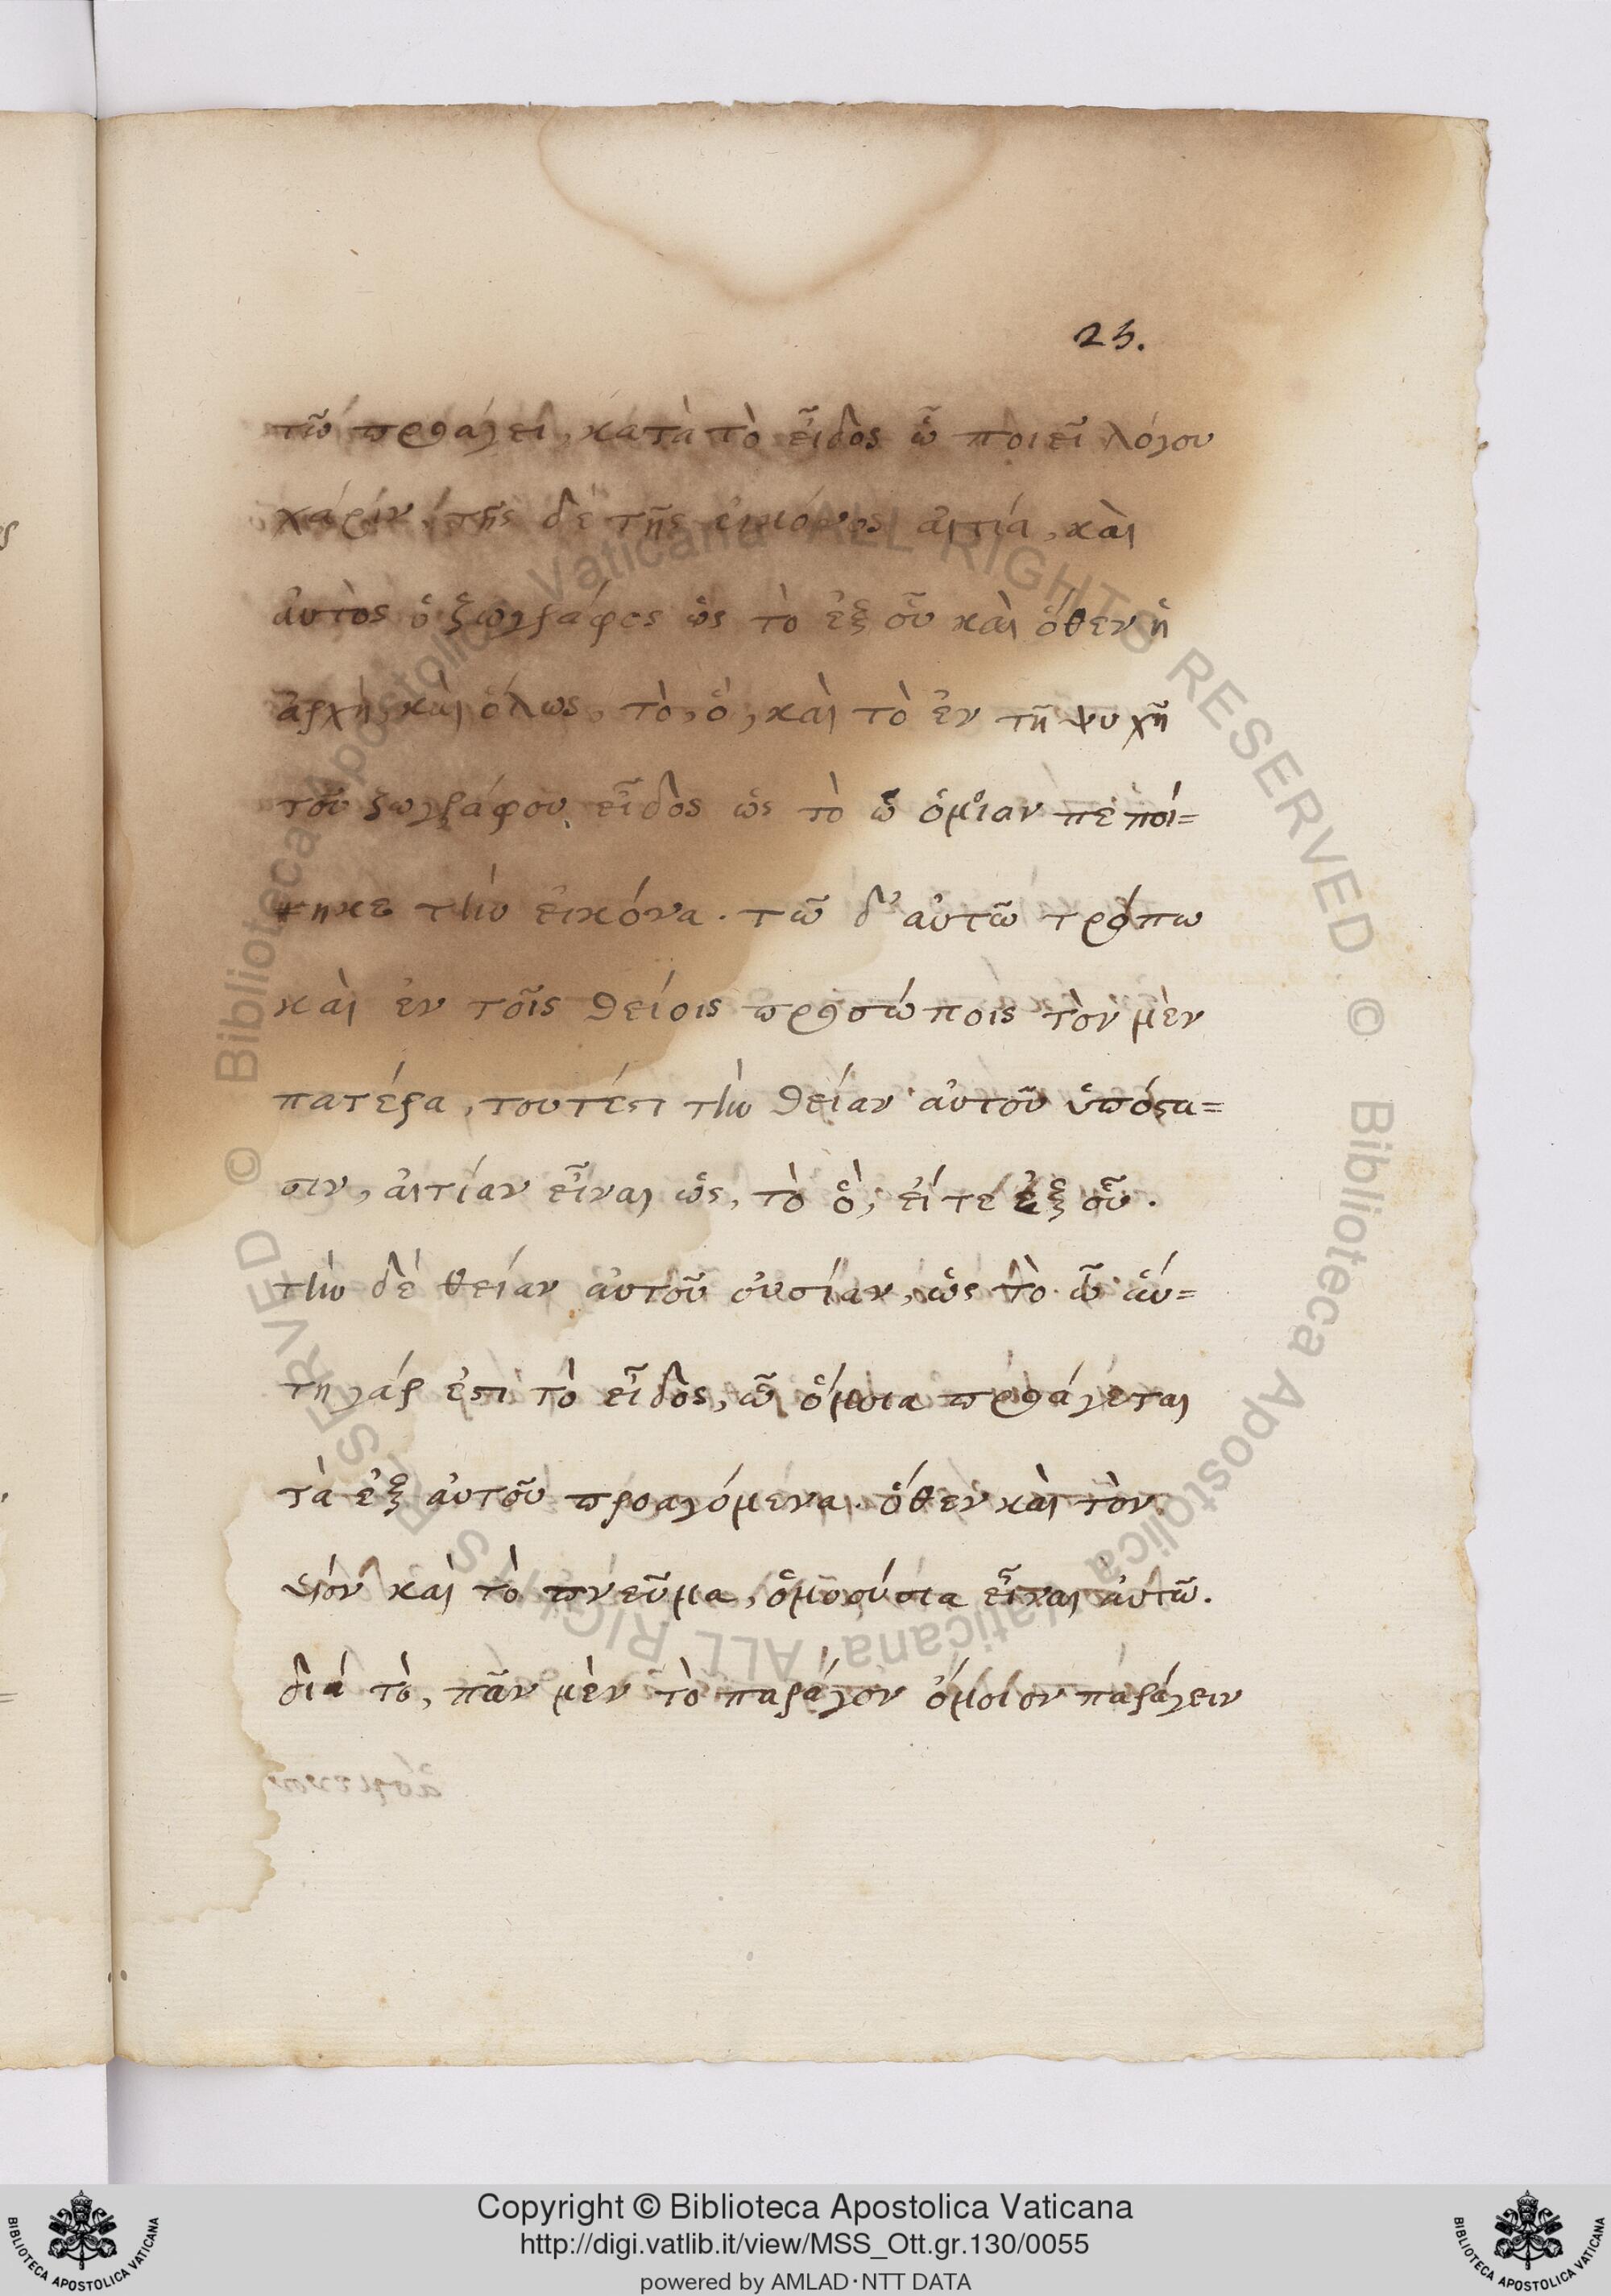 25.
τῶ προάγει, κατὰ τὸ εἶδος ᾧ ποιεῖ λόγου
χάριν, τῆς δὲ τῆς εἰκόνος αἰτία, καὶ
αὐτὸς ὁ ζωγράφος ὡς τὸ ἐξ οὗ καὶ ὅθεν ἡ
ἀρχὴ, καὶ ὅλως, τὸ, ὁ, καὶ τὸ ἐν τῆ ψυχῆ
τοῦ ζωγράφου εἶδος ὡς τὸ ᾧ ὁμοίαν πεποί=
ηκε τὴν εἰκόνα. τῶ δ' αὐτῶ τρόπω
καὶ ἐν τοῖς θείοις προσώποις τὸν μὲν
πατέρα, τουτέστι τὴν θείαν αὐτοῦ ὑπόστα=
σιν, αἰτίαν εἶναι ὡς, τὸ ὃ, εἴτε ἐξ οὗ.
τὴν δὲ θείαν αὐτοῦ οὐσίαν, ὡς τὸ ᾧ αὕ=
τη γάρ ἐστι τὸ εἶδος, ᾧ ὅμοια προάγεται
τὰ ἐξ αὐτοῦ προαγόμενα. ὅθεν καὶ τὸν
υἱόν καὶ τὸ πνεῦμα, ὁμοούσια εἶναι αὐτῶ.
διά τὸ, πᾶν μὲν τὸ παράγον ὅμοιον παράγειν
Copyright © Biblioteca Apostolica Vaticana
http://digi.vatlib.it/view/MSS_Ott.gr.130/0055
powered by AMLAD·NTT DATA
BIBLIOTECA APOSTOLICA VATICANA
BIBLIOTECA APOSTOLICA VATICANA
© Biblioteca Apostolica Vaticana ALL RIGHTS RESERVED © Biblioteca Apostolica Vaticana ALL RIGHTS RESERVED